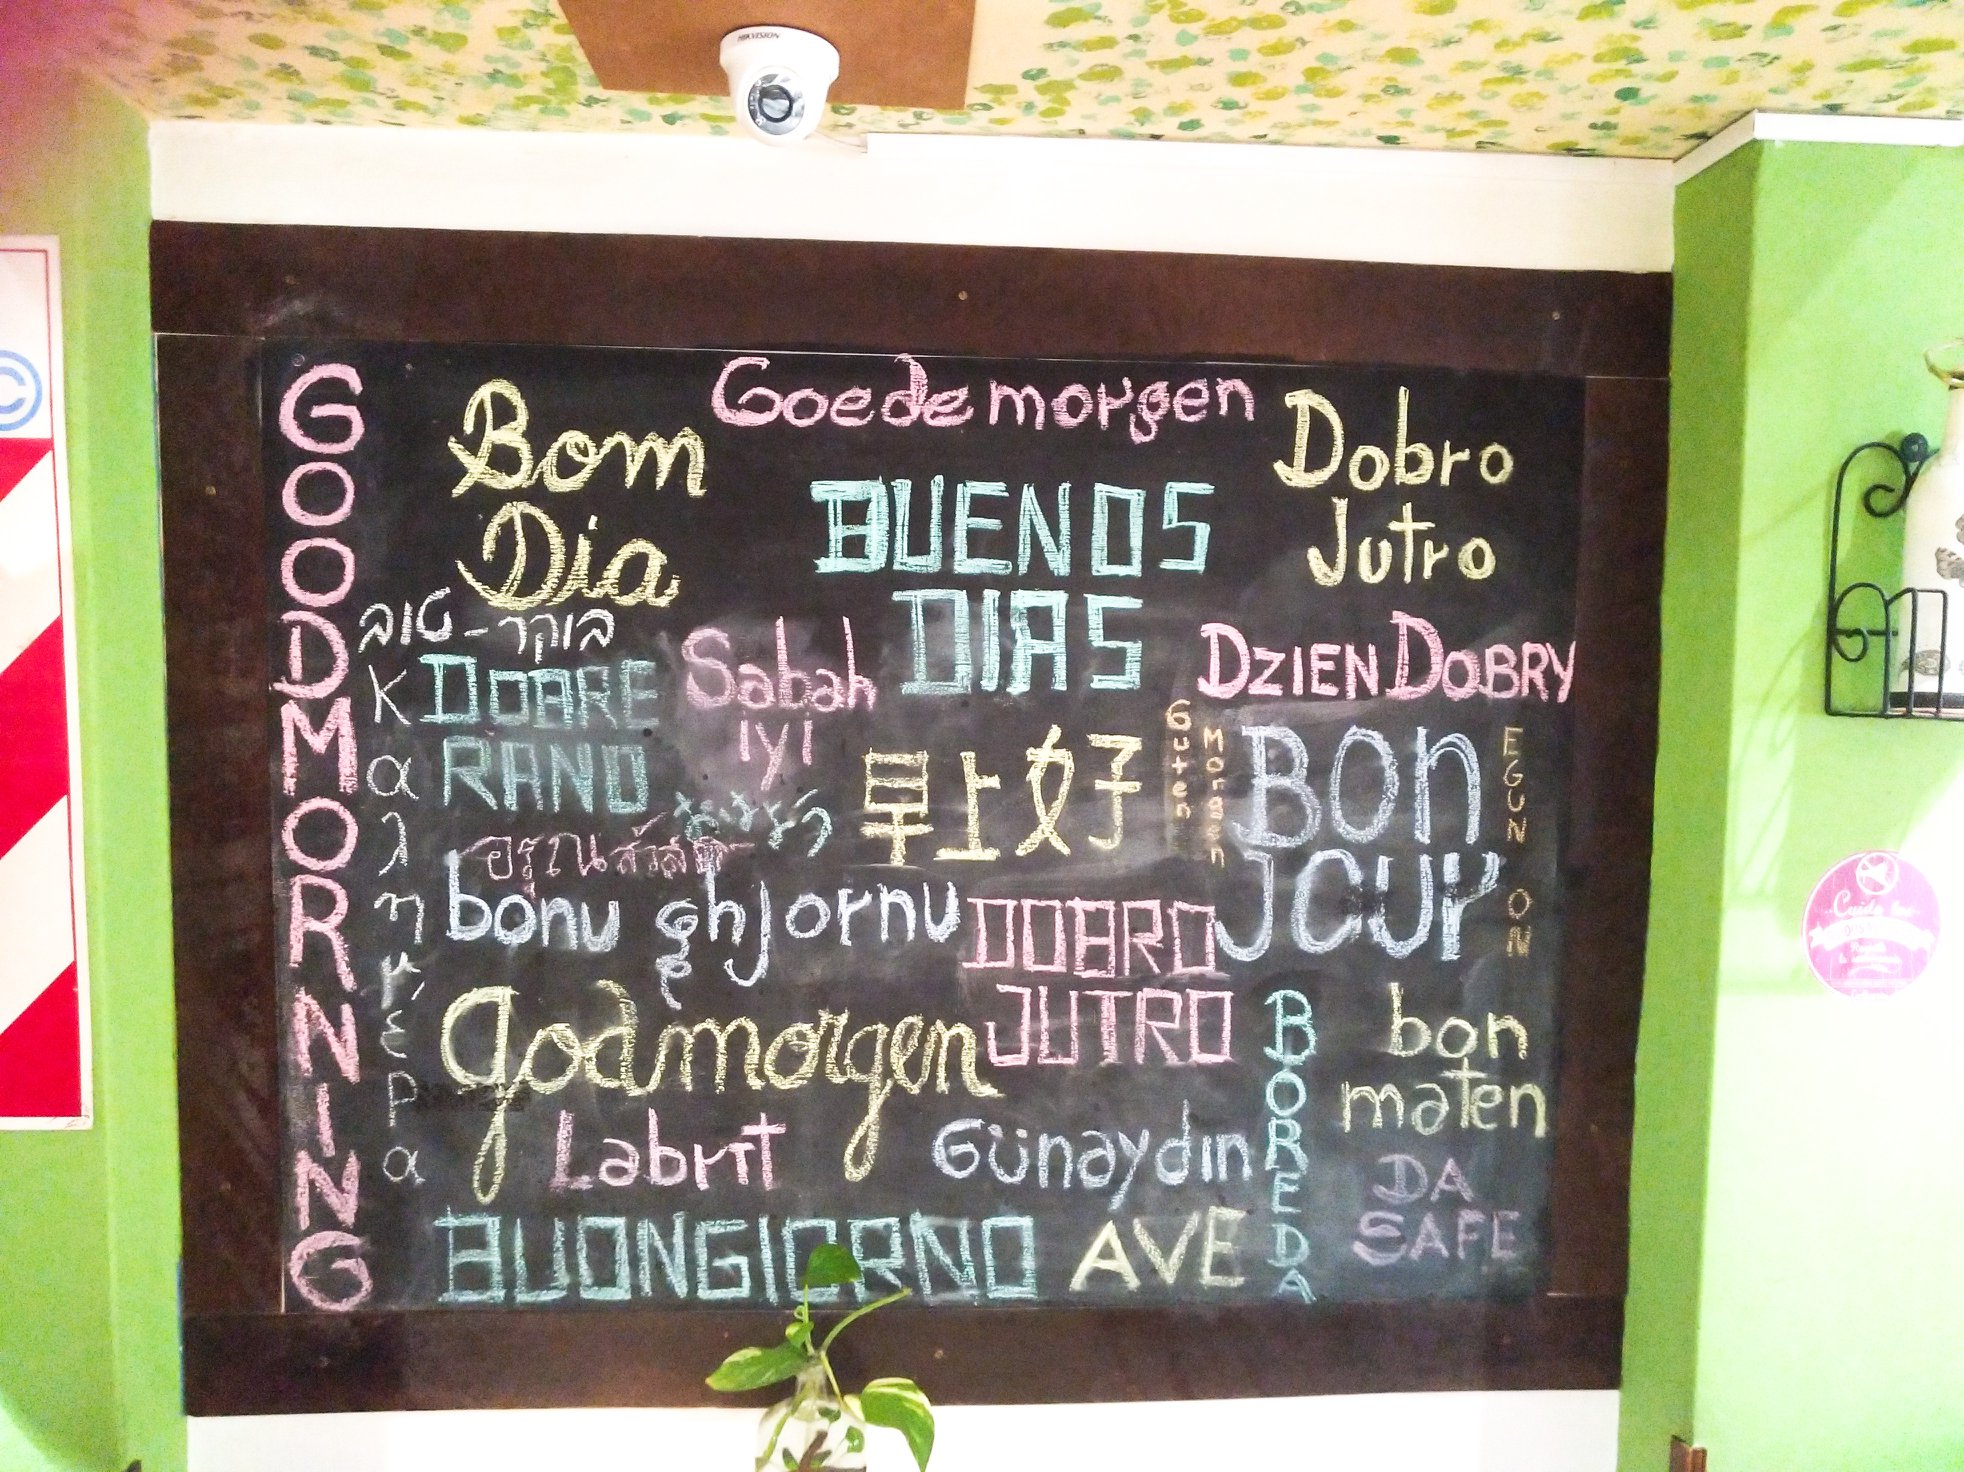 HIKVISION
GOODMORNING
Bom
Dia
Goede morgen
BUENOS
DIAS
Dobro
Jutro
בוקר-טוב
Καλημέρα
DOBRE
RANO
Sabah
iyi
DZIEN DOBRY
早上好
Guten
Morgen
BON
JOUR
EGUN ON
อรุณสวัสดิ์
bonu ghjornu
DOBRO
JUTRO
godmorgen
BOREDA
bon
maten
Labrīt
Günaydin
DA
SAFE
BUONGIORNO
AVE